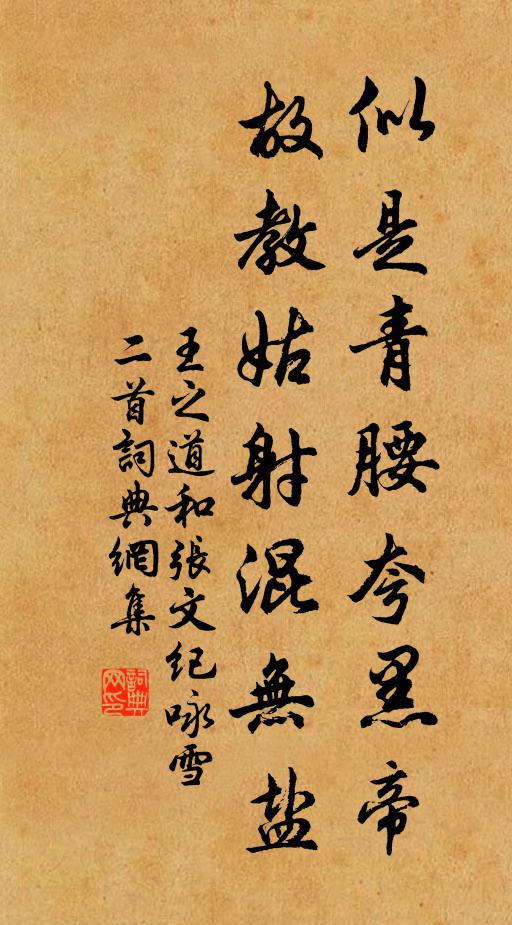 似是青腰夸黑帝
故教姑射混無盐
王之道和張文纪咏雪
二首詞典網集
詞典
网印